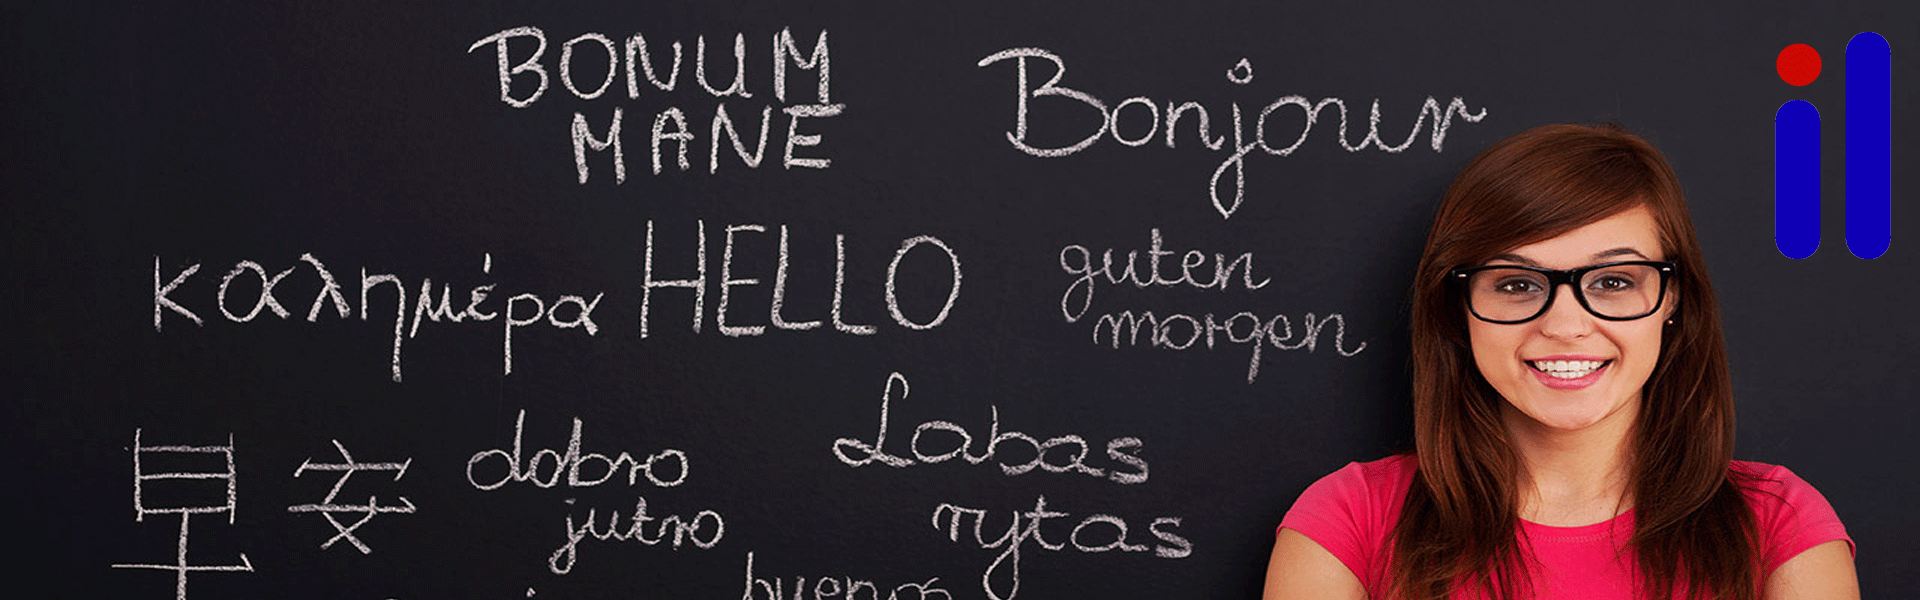 BONUM
MANE
Bonjour
καλημέρα
HELLO
guten
morgen
早安
dobro
jutro
Labas
rytas
buenos
il